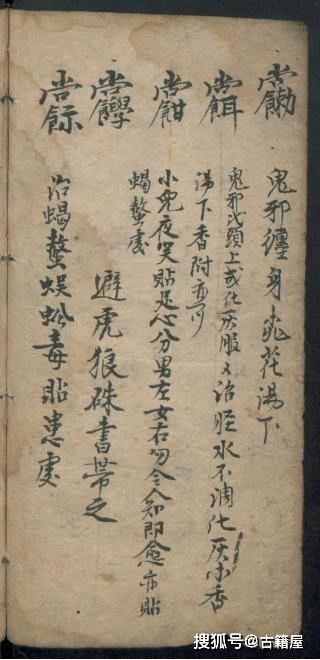 鬼邪纏身桃花湯下
鬼邪 頭上或化灰服又治 水不調化灰小香
湯下香附亦可
小児夜哭貼足心分男左女右勿令人知即愈亦貼
蝎螫處
避虎狼硃書帶之
治蝎螫蜈蚣毒貼患處
搜狐号@古籍屋